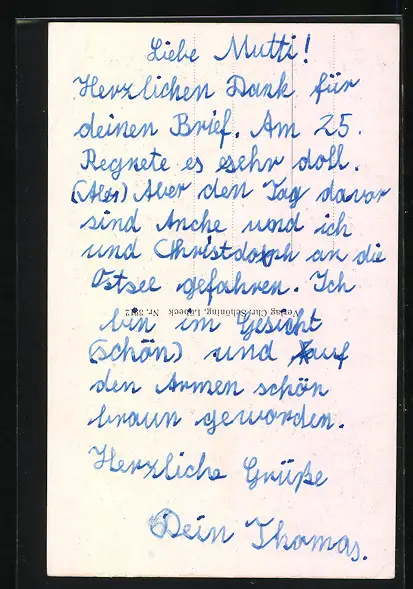 Liebe Mutti!
Herzlichen Dank für
deinen Brief. Am 25.
Regnete es sehr doll.
(Aber) Aber den Tag davor
sind Anche und ich
und Christdolph an die
Ostsee gefahren. Ich
Verlag Chr. Schöning, Lübeck Nr.
bin im Gesicht
(schön) und auf
den Armen schön
braun geworden.
Herzliche Grüße
Dein Thomas.